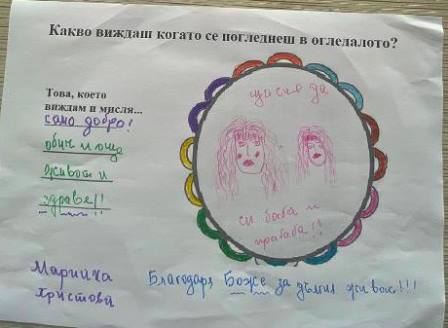 Какво виждаш когато се погледнеш в огледалото?
Това, което
виждам и мисля...
само добро!
обич много
живот и
здраве!!
искам да
си баба и
прабаба!!
Марийка
Христова
Благодаря Боже за дългия живот!!!